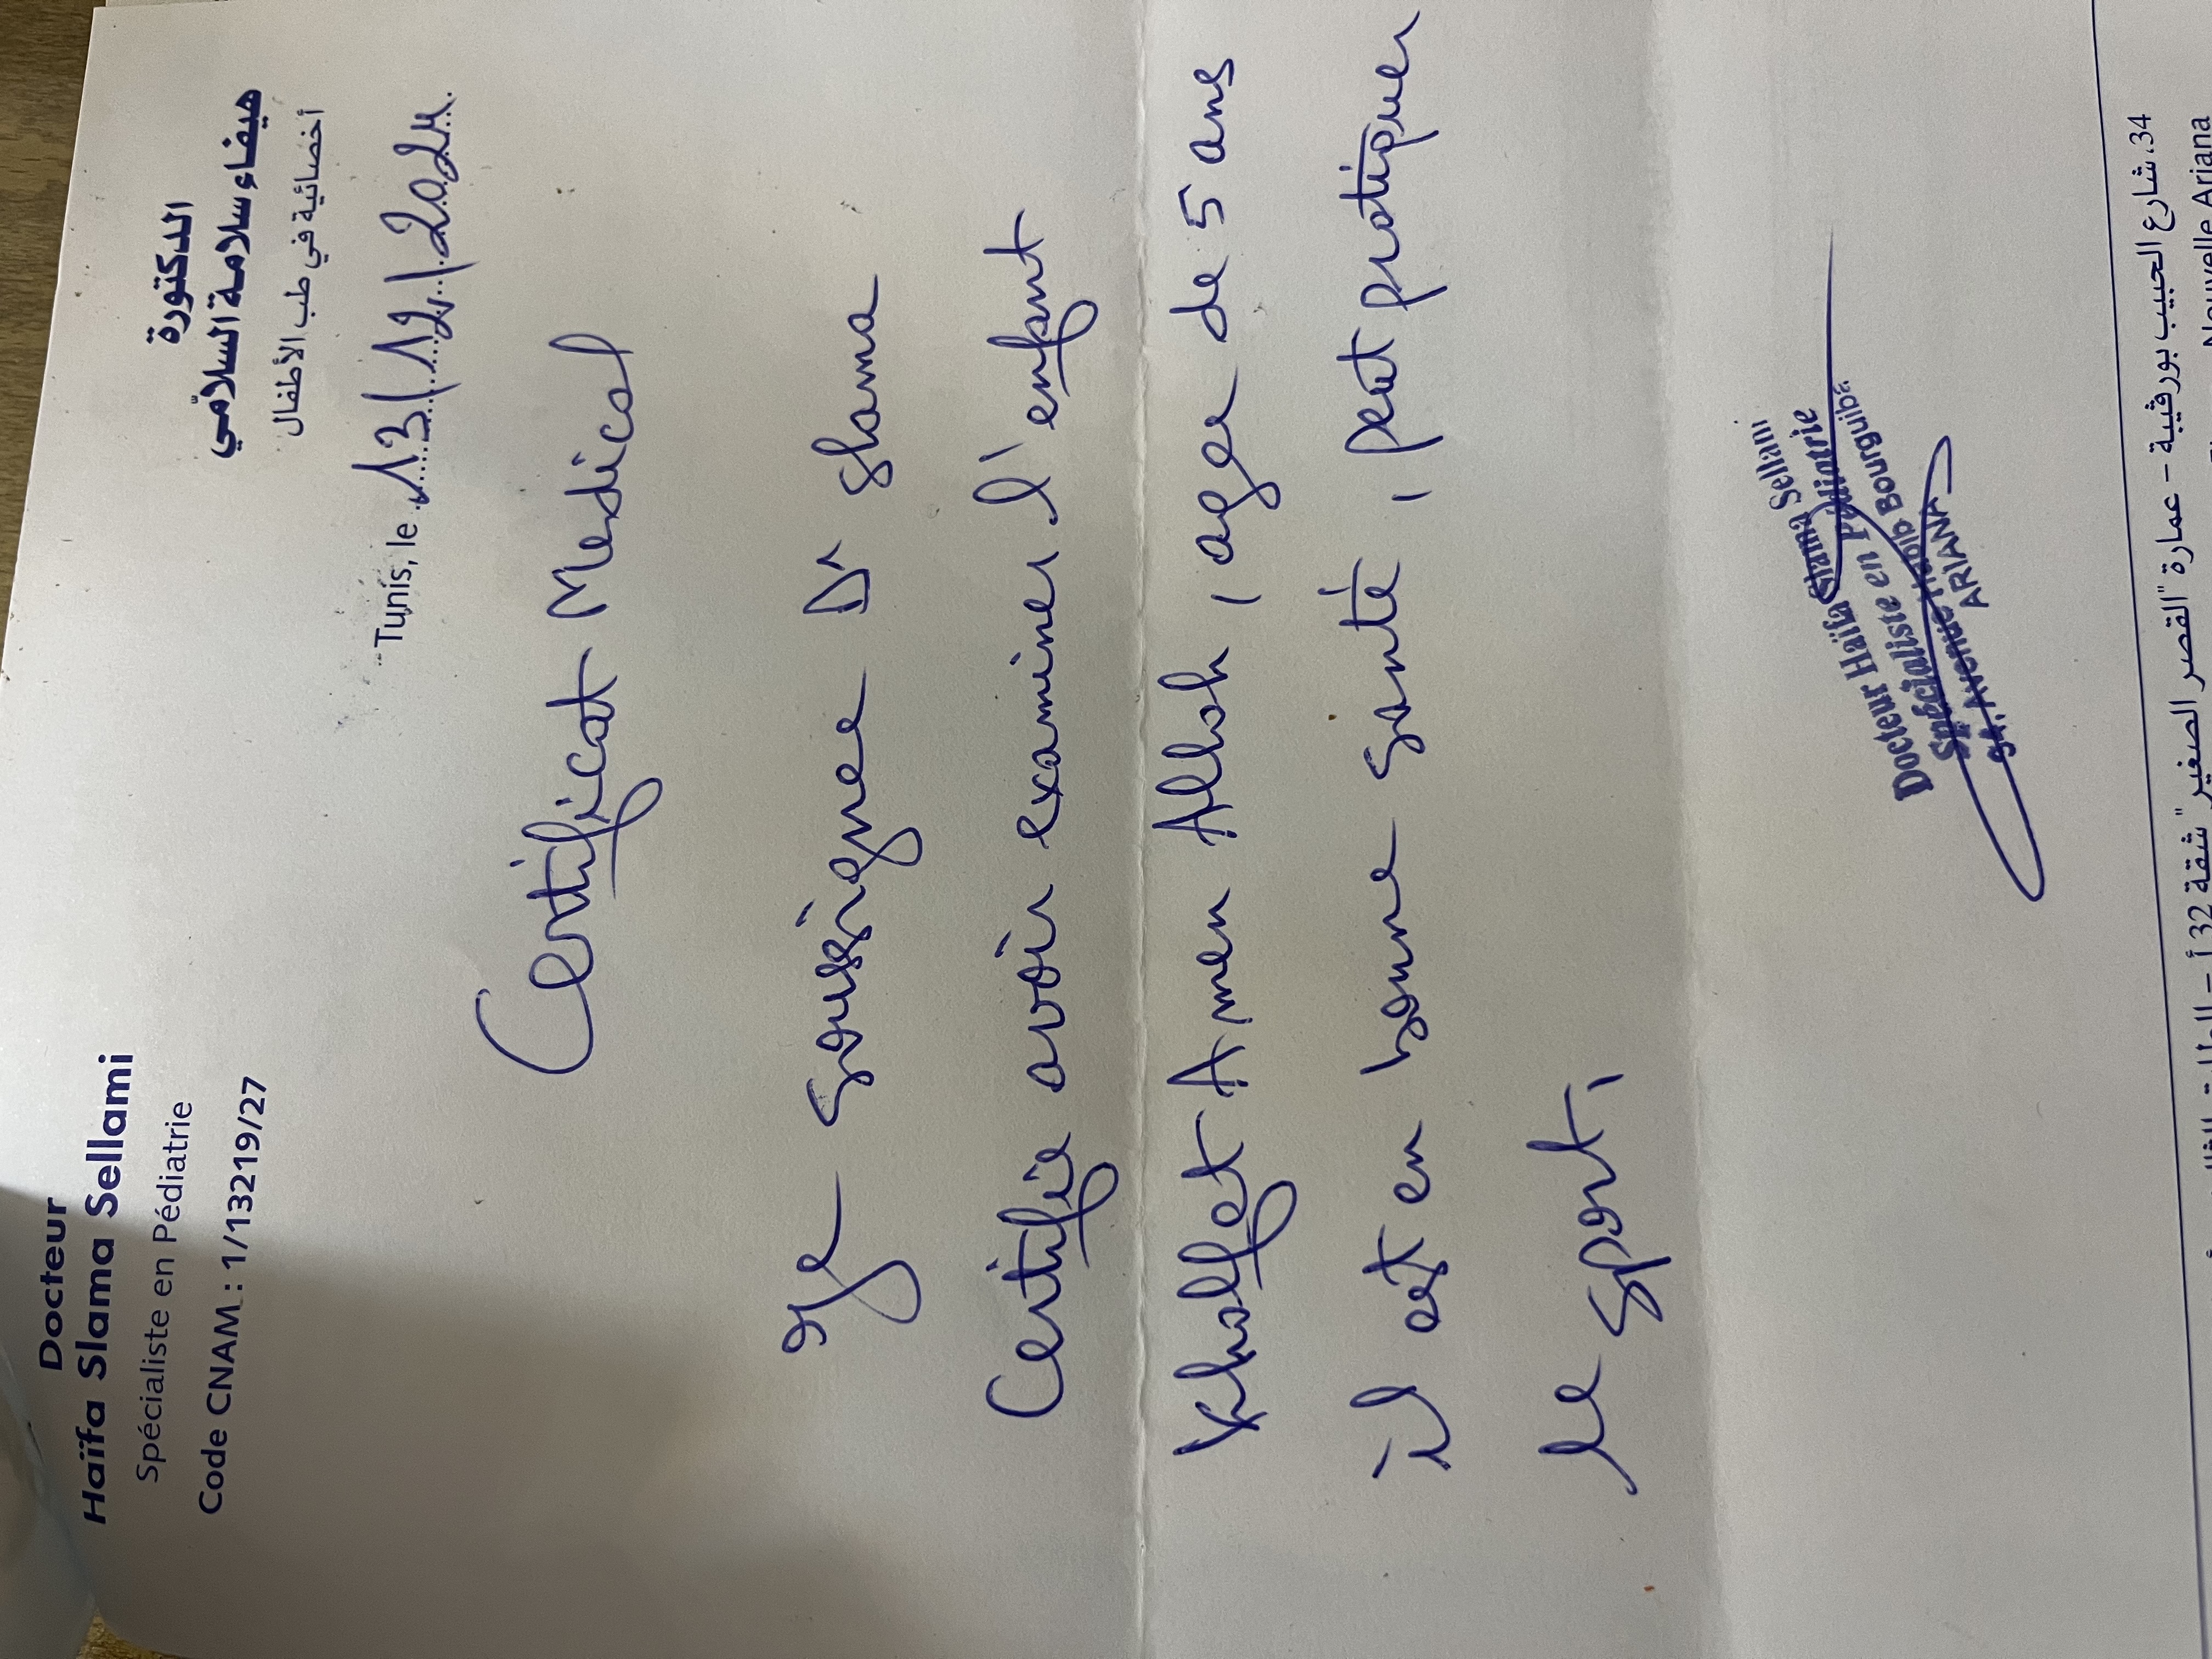 Docteur
Haïfa Slama Sellami
Spécialiste en Pédiatrie
Code CNAM : 1/13219/27
الدكتورة
هيفاء سلامة السلامّي
أخصائية في طب الأطفال
Tunis, le 13/12/2024
Certificat Medical
Je soussignee Dr Slama
Certifie avoir examiner l'enfant
Khalfet Amen Allah, age de 5 ans
il est en bonne santé, peut pratiquer
le sport,
Docteur Haïfa Slama Sellami
Spécialiste en Pédiatrie
34, Avenue Habib Bourguiba
ARIANA
34، شارع الحبيب بورقيبة - عمارة "القصر الصغير" شقة 32 أ -
Nouvelle Ariana